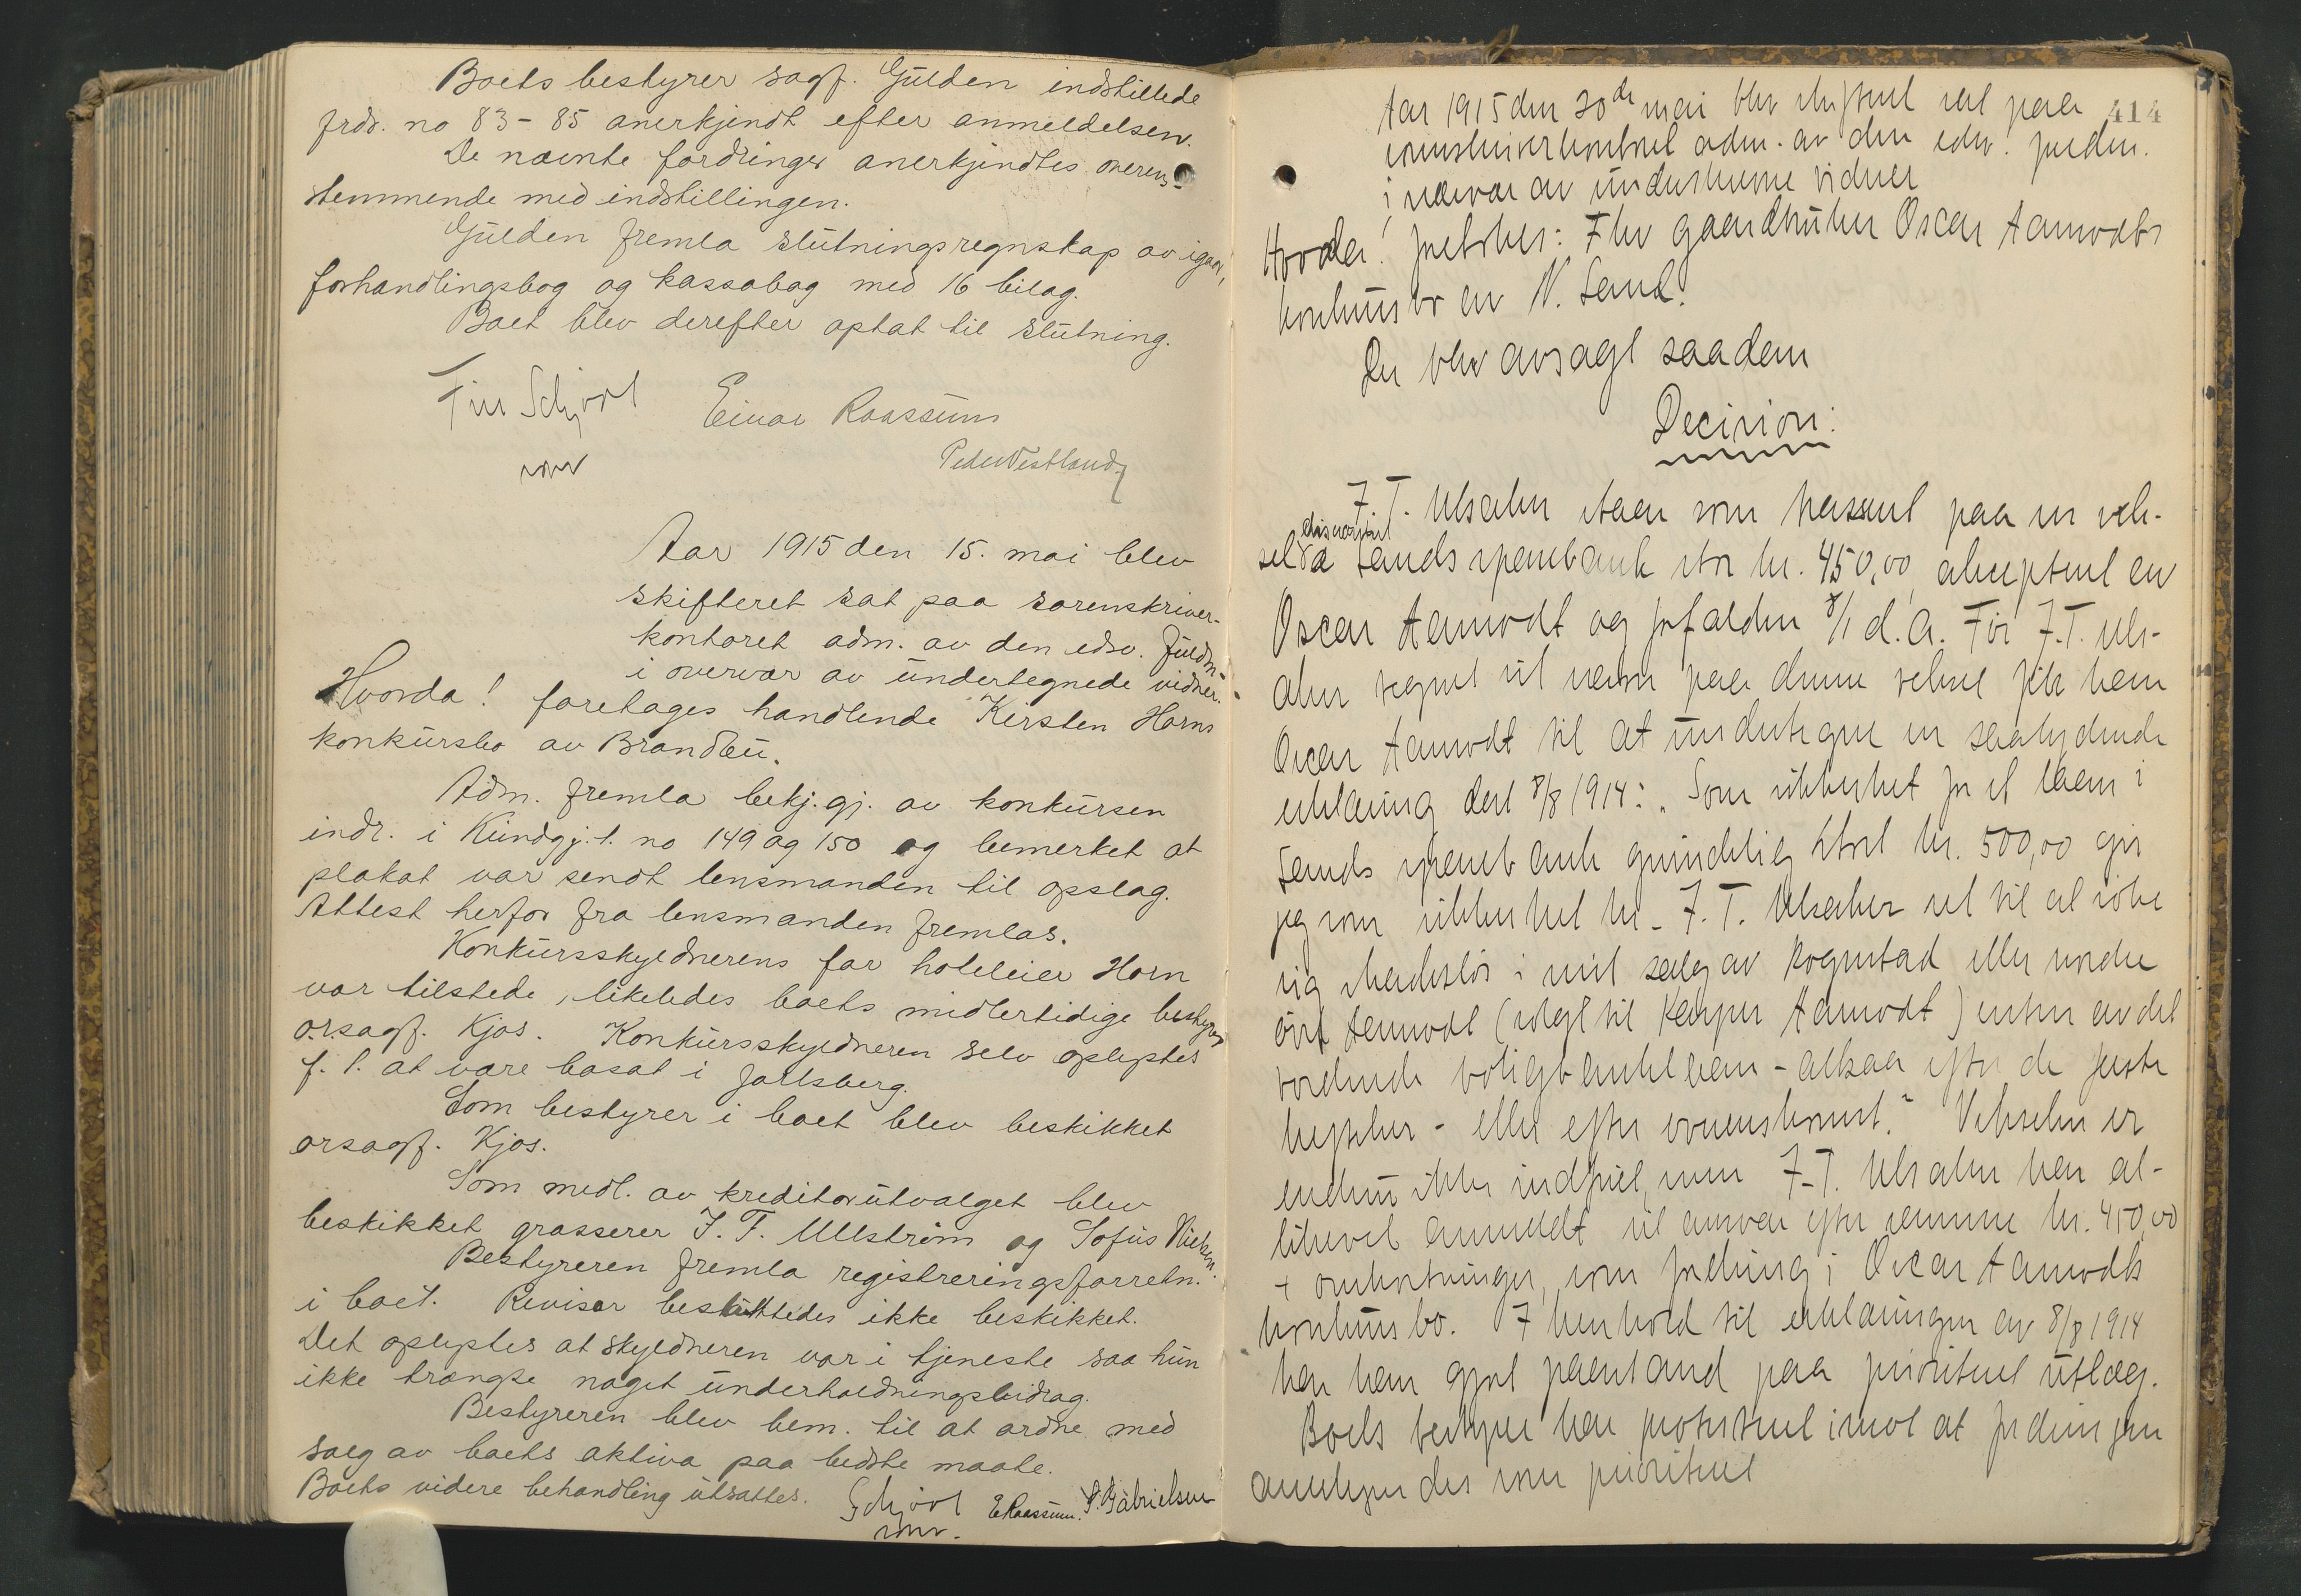 Boets bestyrer sagf. Gulden indstillede
frdr. no 83-85 anerkjendt efter anmeldelsen.
De nævnte fordringer anerkjendtes overens-
stemmende med indstillingen.
Gulden fremla slutningsregnskap av igaar,
forhandlingsbog og kassabog med 16 bilag.
Boet blev derefter optat til slutning.
Finn Schjødt Einar Raassum
Peder Vestland
Aar 1915 den 15. mai blev
skifteret sat paa sorenskriver-
kontoret adm. av den edsv. fuldm.
i overvær av undertegnede vidner.
Hvorda! foretages handlende Kirsten Horns
konkursbo av Brandbu.
Adm. fremla bekj.gj. av konkursen
indr. i Kundgj.t. no 149 og 150 og bemerket at
plakat var sendt lensmanden til opslag.
Attest herfor fra lensmanden fremlas.
Konkursskyldnerens far hoteleier Horn
var tilstede, likeledes boets midlertidige bestyrer
o.r.sagf. Kjos. Konkursskyldneren selv oplystes
f. t. at være bosat i Jarlsberg.
Som bestyrer i boet blev beskikket
orsagf. Kjos.
Som medl. av kreditorutvalget blev
beskikket grosserer J. F. Ullstrøm og Sofus Nielsen.
Bestyreren fremla registreringsforretn.
i boet. Revisor besluttedes ikke beskikket.
Det oplystes at skyldneren var i tjeneste saa hun
ikke trængte noget underholdningsbidrag.
Bestyreren blev bem. til at ordne med
salg av boets aktiva paa bedste maate.
Boets videre behandling utsattes. Schjødt E Raassum. P. Gabrielsen
414
Aar 1915 den 20de mai blev skifteret sat paa
sorenskriverkontoret adm. av den edsv. fuldm.
i nærvær av underskrevne vidner
Hvorda! foretokes: Fhv gaardbruker Oscar Aamodts
konkursbo av N. Land.
Der blev avsagt saadan
Decision:
J. T. Ulsaker staar som trassent paa en vek-
sel diskontert i Lands sparebank stor kr. 450,00, akseptert av
Oscar Aamodt og forfalden 8/1 d.a. Før J.T. Uls-
aker tegnet sit navn paa denne veksel fik han
Oscar Aamodt til at undertegne en saalydende
erklæring dat 8/8 1914: „Som sikkerhet for et laan i
Lands sparebank oprindelig stort kr. 500,00 gir
jeg som sikkerhet hr. J. T. Ulsaker ret til at søke
sig skadesløs i mit salg av Rognstad eller nordre
øvr Aamodt (solgt til Kasper Aamodt) enten av det
vordende boligbanklaan - altsaa efter de første
heftelser - eller efter overenskomst." Vekselen er
endnu ikke indfriet, men J. T. Ulsaker har al-
likevel anmeldt sit ansvar efter samme kr. 450,00
+ omkostninger, som fordring i Oscar Aamodts
konkursbo. I henhold til erklæringen av 8/8 1914
har han gjort paastand paa prioritert utlæg.
Boets bestyrer har protestert imot at fordringen
anerkjendes som prioritert